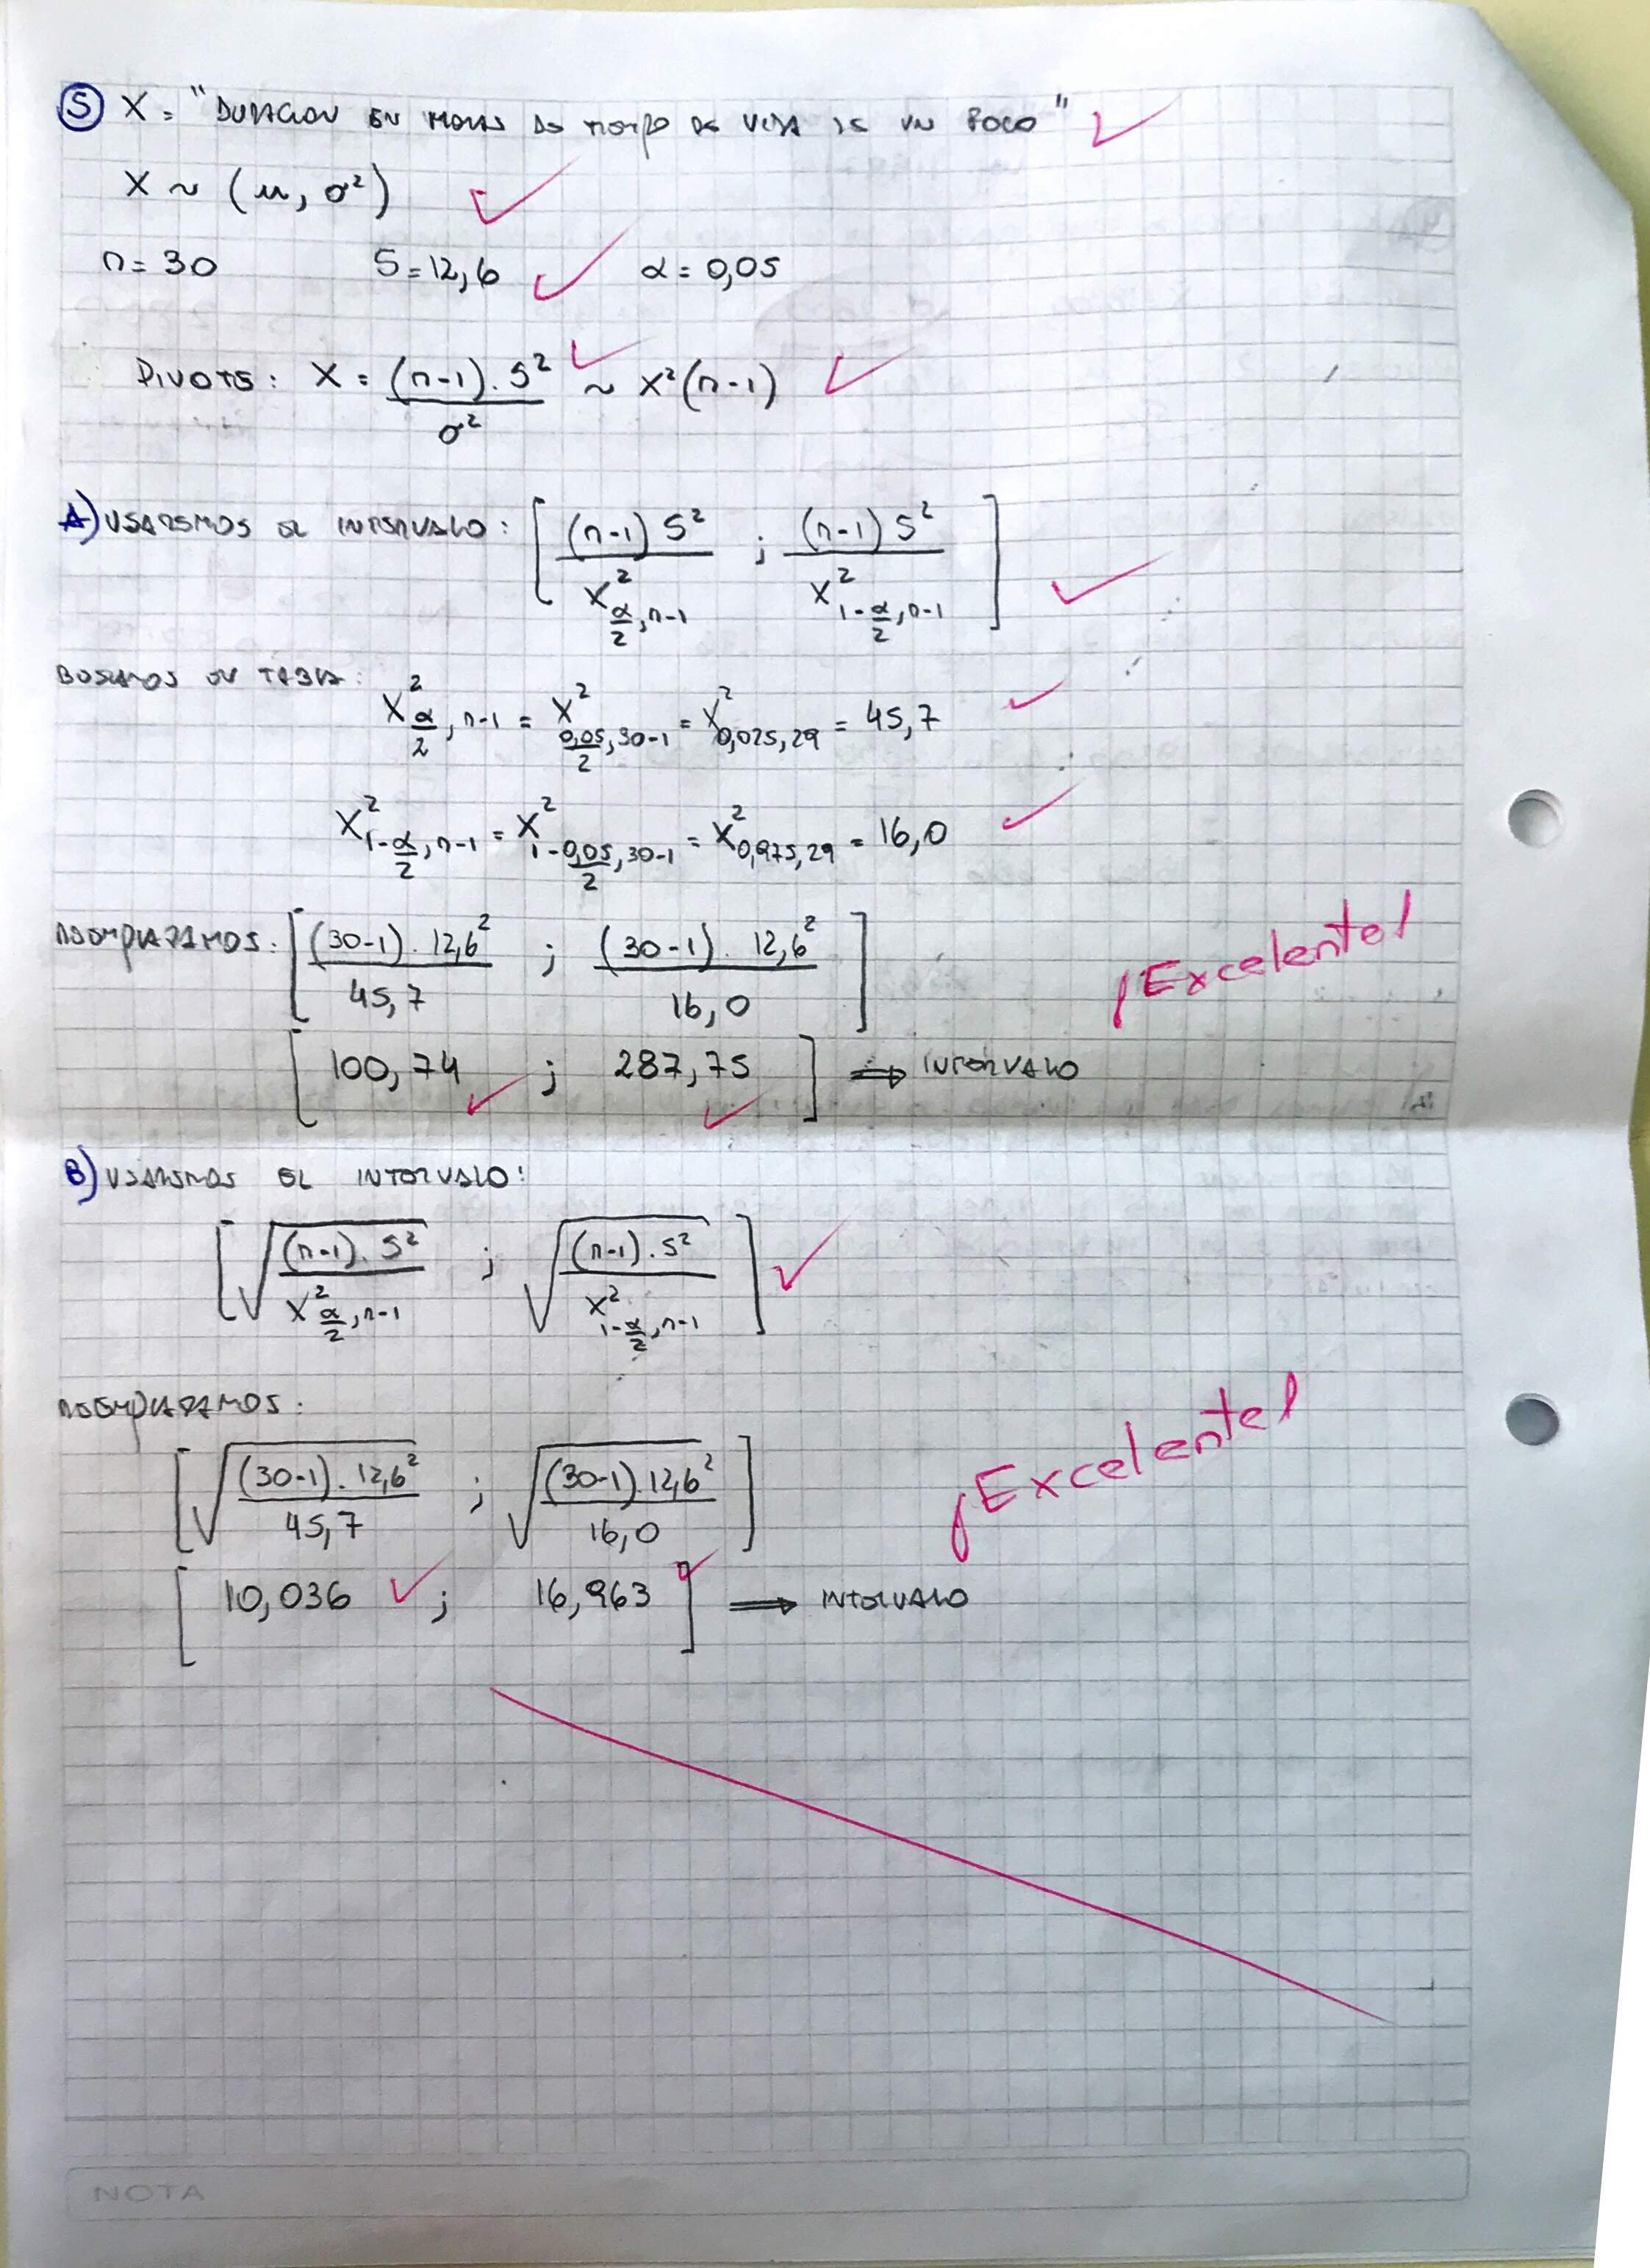 5 X = "DURACION EN HORAS DE TIEMPO DE VIDA DE UN FOCO"
X ~ (μ, σ²)
n = 30 S = 12,6 α = 0,05
PIVOTE: X = (n-1) . S² / σ² ~ X²(n-1)
A) USAREMOS EL INTERVALO: [ (n-1) S² / X² α/2, n-1 ; (n-1) S² / X² 1-α/2, n-1 ]
BUSCAMOS EN TABLA: X² α/2, n-1 = X² 0,05/2, 30-1 = X² 0,025, 29 = 45,7
X² 1-α/2, n-1 = X² 1-0,05/2, 30-1 = X² 0,975, 29 = 16,0
REEMPLAZAMOS: [ (30-1) . 12,6² / 45,7 ; (30-1) . 12,6² / 16,0 ]
¡Excelente!
[ 100,74 ; 287,75 ] ⇒ INTERVALO
B) USAREMOS EL INTERVALO:
[ √((n-1) . S² / X² α/2, n-1) ; √((n-1) . S² / X² 1-α/2, n-1) ]
REEMPLAZAMOS:
[ √((30-1) . 12,6² / 45,7) ; √((30-1) . 12,6² / 16,0) ]
¡Excelente!
[ 10,036 ; 16,963 ] ⇒ INTERVALO
NOTA